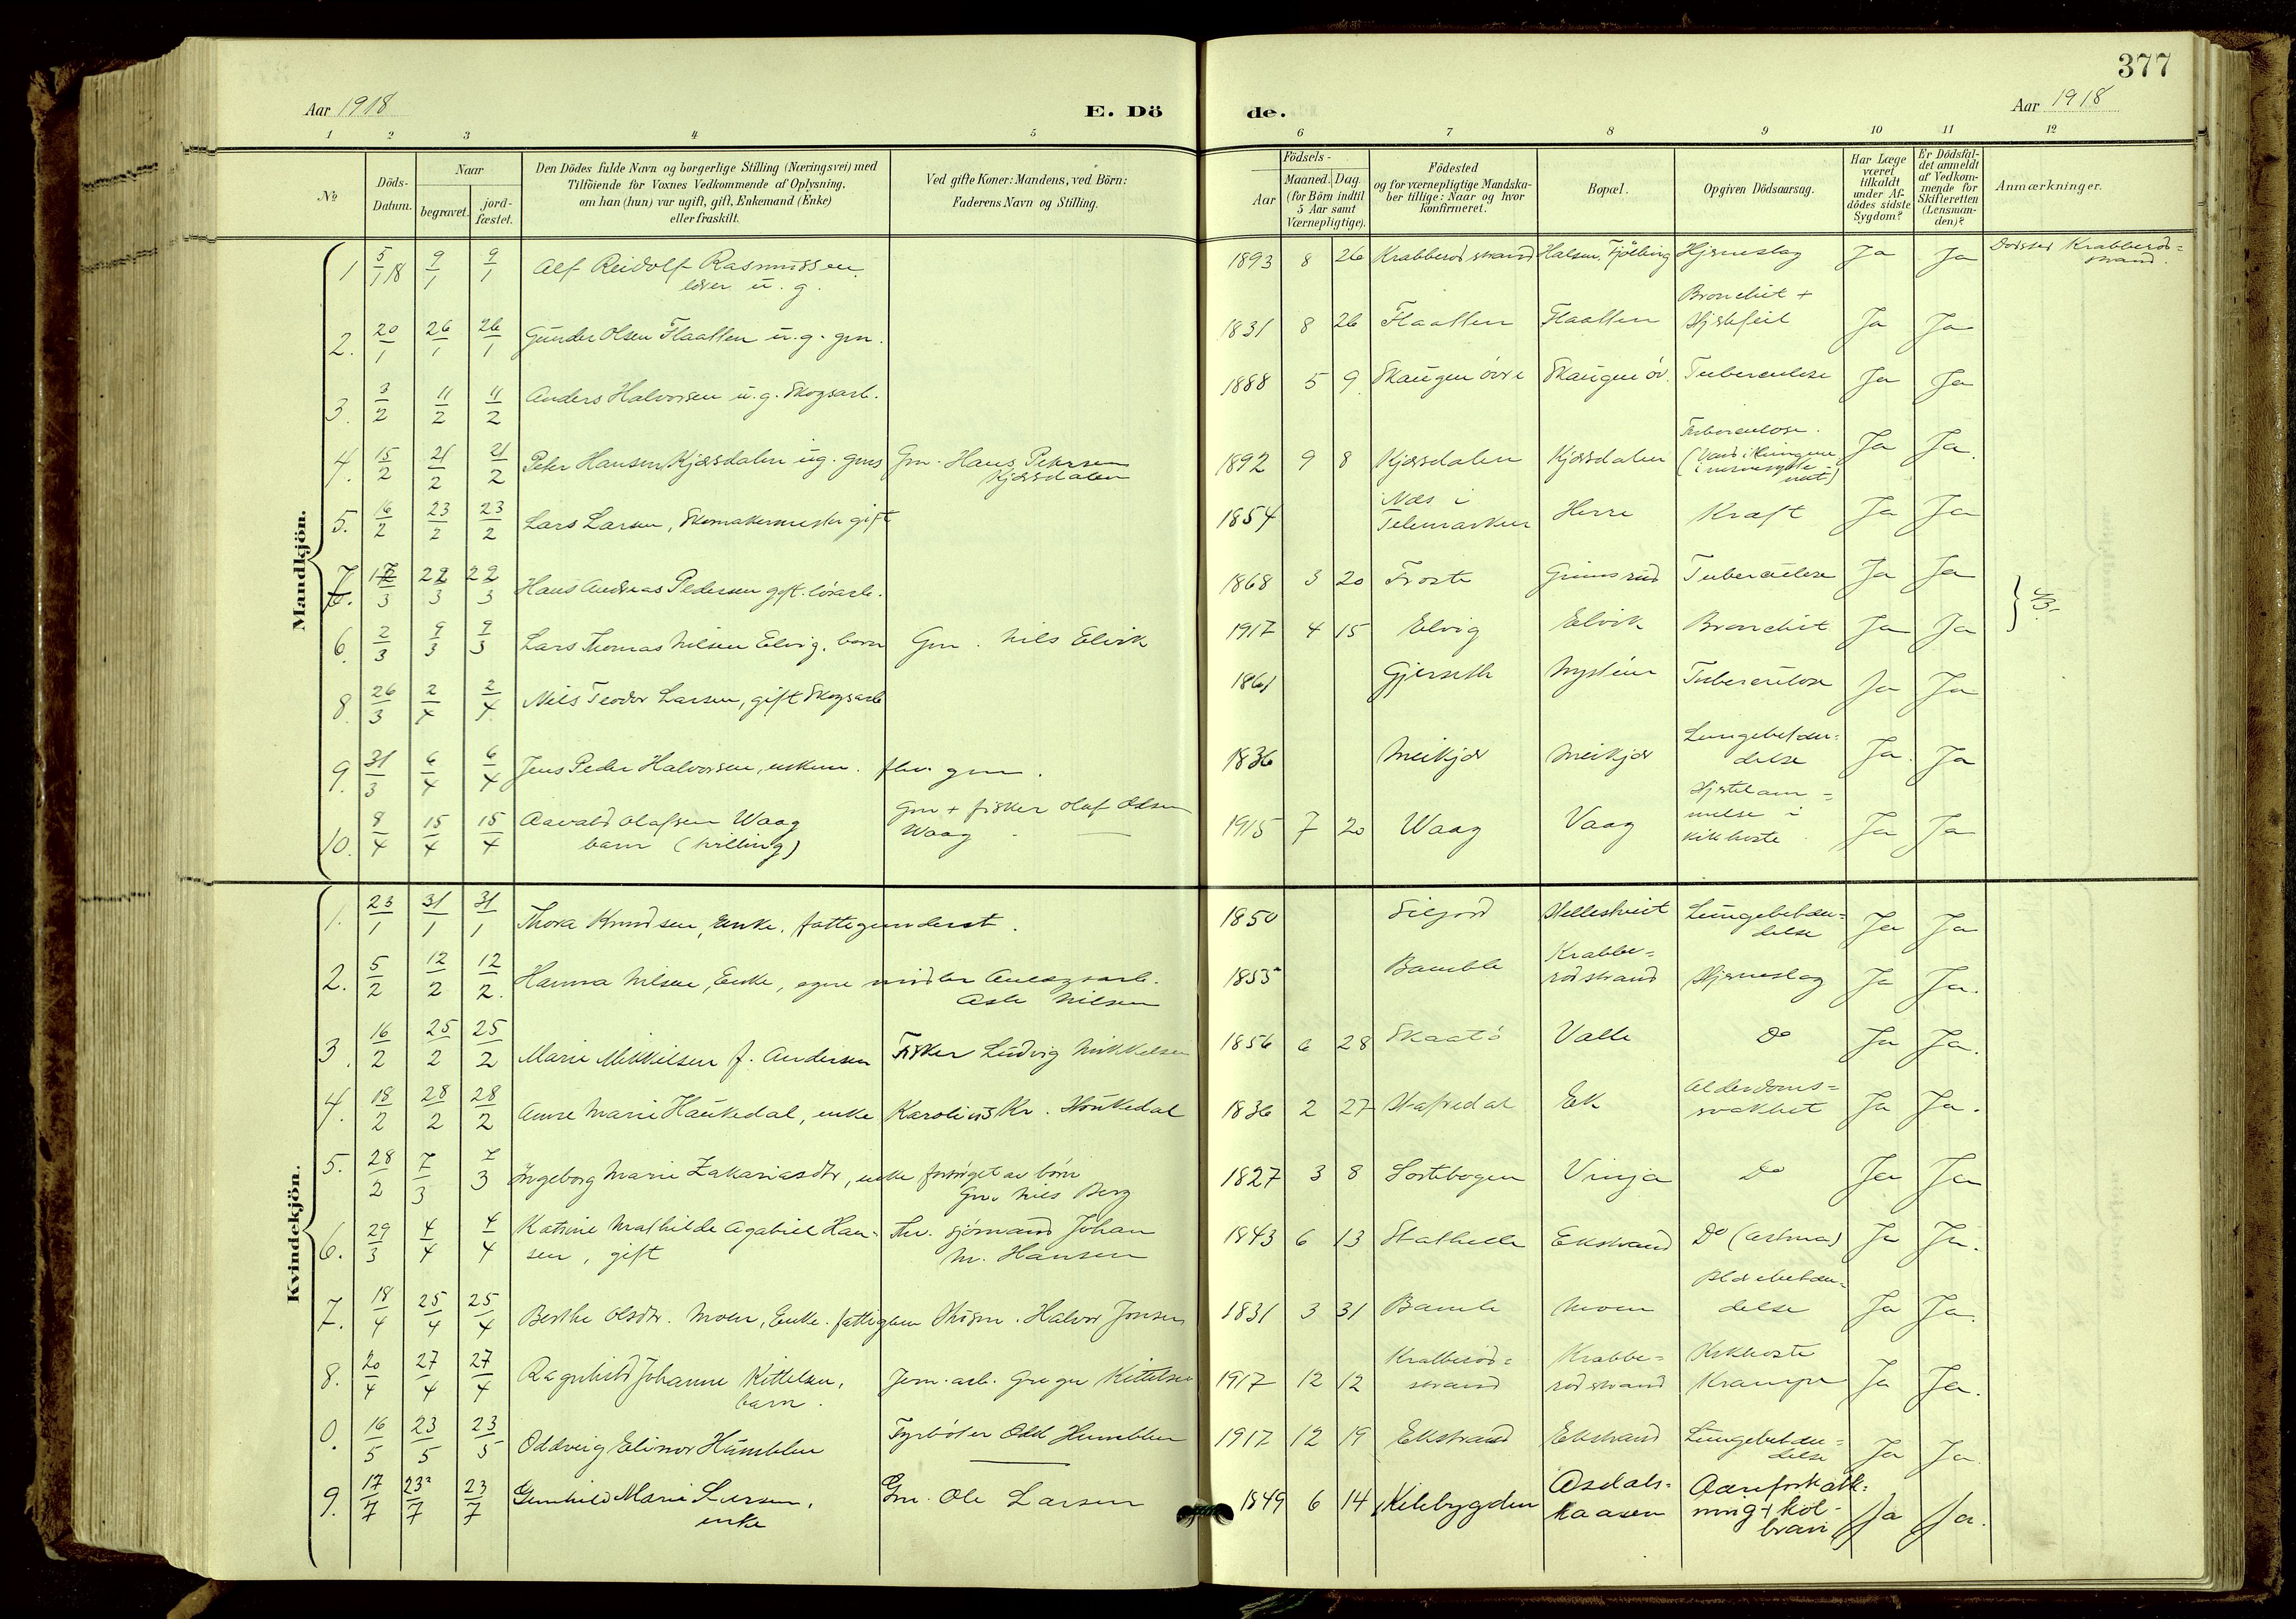 377
Aar 1918 E. Dö de. Aar 1918
1 2 3 4 5 6 7 8 9 10 11 12
No
Döds-
Datum.
Naar
begravet.
jord-
fæstet.
Den Dödes fulde Navn og borgerlige Stilling (Næringsvei) med
Tilföiende for Voxnes Vedkommende af Oplysning,
om han (hun) var ugift, gift, Enkemand (Enke)
eller fraskilt.
Ved gifte Koner: Mandens, ved Börn:
Faderens Navn og Stilling.
Födsels-
Aar
Maaned. Dag
(for Börn indtil
5 Aar samt
Værnepligtige).
Födested
og for værnepligtige Mandska-
ber tillige: Naar og hvor
konfirmeret.
Bopæl.
Opgiven Dödsaarsag.
Har Læge
været
tilkaldt
under Af-
dödes sidste
Sygdom?
Er Dödsfal-
det anmeldt
af Vedkom-
mende for
Skifteretten
(Lensman-
den)?
Anmærkninger.
Mandkjön.
1 5/1 18 9/1 9/1 Alf Reidolf Rasmussen 1893 8 26 Krabberød strand Halsen, Tjølling Hjerneslag Ja Ja Dødsted Krabberød=
u. g. strand.
Bronchit +
2. 20/1 26/1 26/1 Gunder Olsen Flaatten u.g. gm. 1831 8 26 Flaatten Flaatten Hjertefeil Ja Ja
3. 3/2 11/2 11/2 Anders Halvorsen u.g. Skogsarb. 1888 5 9 Skaugen övre Skaugen öv. Tuberculose Ja Ja
Tuberculose.
4. 15/2 21/2 21/2 Peter Hansen Kjærsdalen ug. gms Gm. Hans Petersen 1892 9 8 Kjærsdalen Kjærsdalen Ja Ja.
Kjærsdalen
Næs i
5. 16/2 23/2 23/2 Lars Larsen, Skomakermester gift 1854 Telemarken Herre Kræft Ja Ja
7. 17/3 22/3 22/3 Hans Andreas Pedersen gift. lösarb. 1868 3 20 Froste Grimsrud Tuberculose Ja Ja
6. 2/3 9/3 9/3 Lars Thomas Nilsen Elvig, barn Gm. Nils Elvik 1917 4 15 Elvig Elvik Bronchit Ja Ja
8. 26/3 2/4 2/4 Nils Teodor Larsen, gift Skogsarb 1861 Gjerseth Nystuen Tuberculose Ja Ja
Lungebetæn=
9. 31/3 6/4 6/4 Jens Peder Halvorsen, enkem. fhv. gm. 1836 Meikjær Meikjær delse Ja. Ja
Gm + fisker Olaf Olsen Hjertelam=
10. 8/4 15/4 15/4 Aavald Olafsen Waag Waag 1915 7 20 Waag Vaag melse i Ja Ja
barn (tvilling) kikhoste
Kvindekjön.
1. 23/1 31/1 31/1 Thora Knudsen, Enke, fattigunderst. 1850 Siljord Hellestveit Lungebetæn=
delse Ja Ja
Krabbe=
2. 5/2 12/2 12/2. Hanna Nilsen, Enke, egne midler Anlægsarb. 1853 Bamble rødstrand Hjerneslag Ja Ja.
Asle Nilsen
3. 16/2 25/2 25/2 Marie Mikkelsen f. Andersen Fisker Ludvig Mikkelsen 1856 6 28 Skaatö Valle Do Ja Ja.
Alderdoms=
4. 18/2 28/2 28/2 Anne Marie Haukedal, enke Karolius Kr. Haukedal 1836 2 27 Hafredal Ek svakhet Ja Ja.
5. 28/2 7/3 7/3 Ingeborg Marie Zakariasdtr, enke forsörget av börn 1827 3 8 Sortebogen Vinja Do Ja Ja
Gm. Nils Berg
6. 29/3 4/4 4/4 Katrine Mathilde Agabiel Han= Fhv. sjömand Johan 1843 6 13 Stathelle Ekstrand Do (astma) Ja Ja.
sen, gift M. Hansen
Blærebetæn=
7. 18/4 25/4 25/4 Berthe Olsdtr. Moen, Enke. fattiglem Halvor Jonsen 1831 3 31 Bamle Moen delse Ja Ja.
8. 20/4 27/4 27/4 Ragnhild Johanne Kittelsen, Jern. arb. Greger Kittelsen 1917 12 12 Krabberød= Krabbe= Kikhoste
barn. strand rødstrand Krampe Ja Ja.
0. 16/5 23/5 23/5 Oddveig Elinor Humblen Fyrböter Odd Humblen 1917 12 19 Ekstrand Ekstrand Lungebetæn=
delse Ja Ja
9. 17/7 23/7 23/7 Gunhild Marie Larsen, Gm. Ole Larsen 1849 6 14 Kilebygden Asdals= Aareforkalk=
enke kaasen ning + kol-
bran Ja Ja.